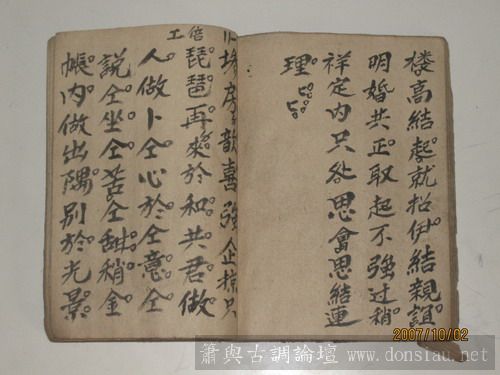 樓高結起就招伊結親誼
明婚共正取起不強过稍
祥定内只处思會思結連
理
房歆喜強企只
工倍
琵琶再來於和共君做
人做卜仝心於仝意仝
說仝坐仝苦仝甜稍金
帳内做出隅别於光景
2007/10/02
簫與古調論壇 www.donsiau.net